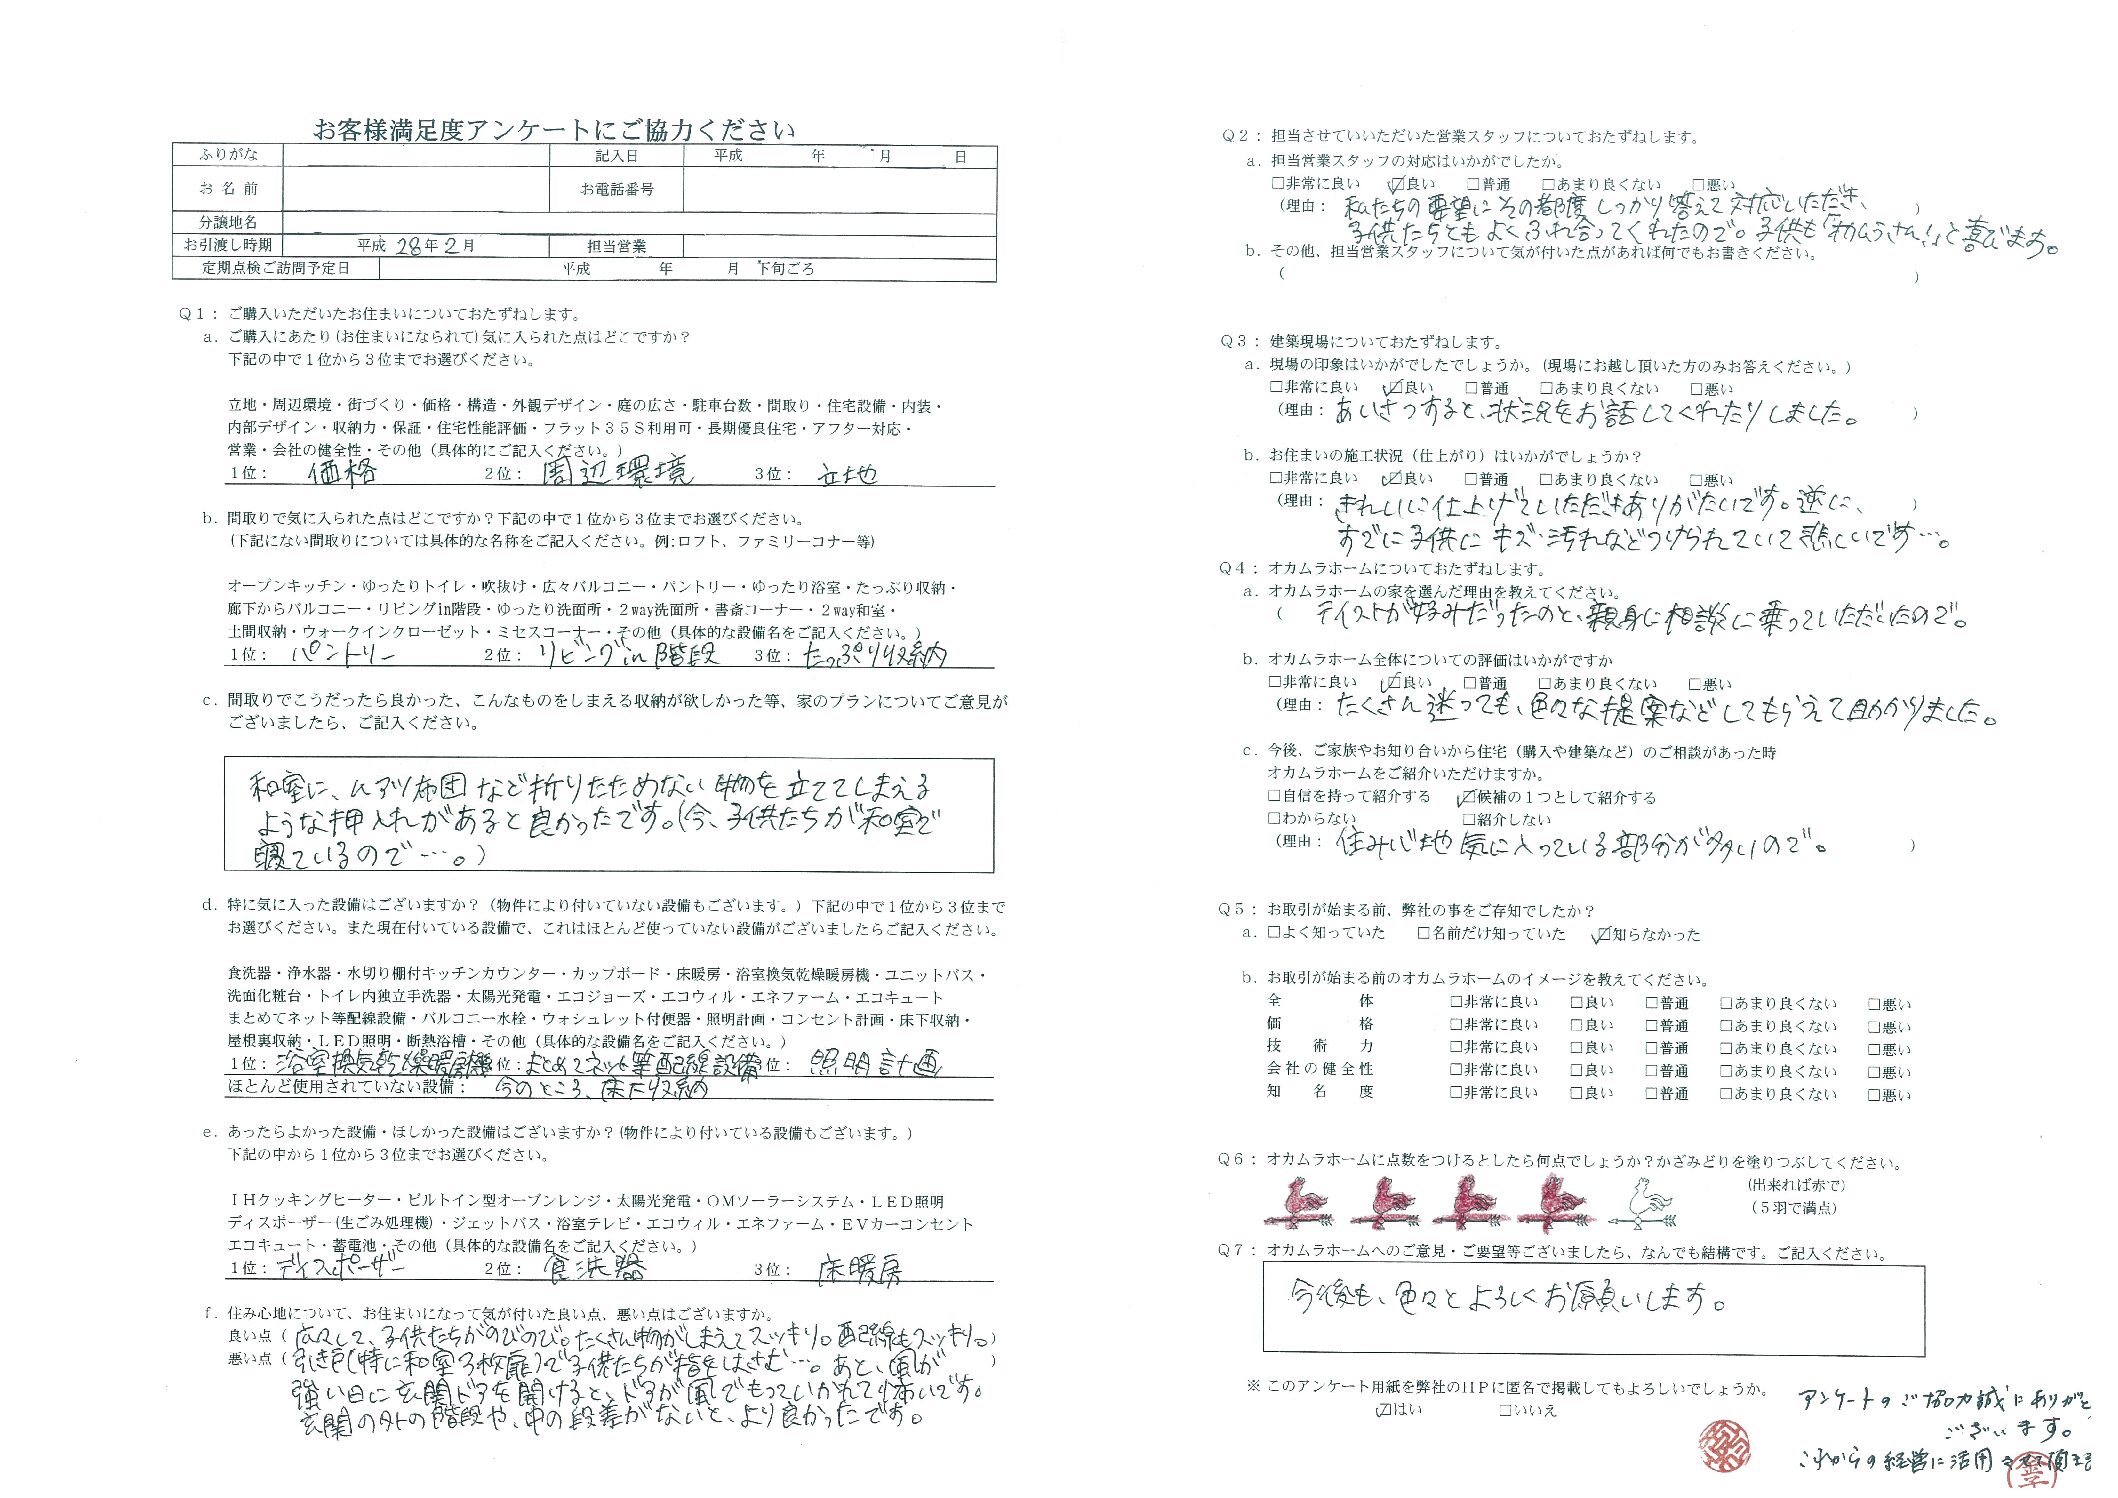 お客様満足度アンケートにご協力ください
ふりがな 記入日 平成 年 月 日
お名前 お電話番号
分譲地名
お引渡し時期 平成 28年 2月 担当営業
定期点検ご訪問予定日 平成 年 月 下旬ごろ
Q1：ご購入いただいたお住まいについておたずねします。
a．ご購入にあたり(お住まいになられて)気に入られた点はどこですか？
下記の中で１位から３位までお選びください。
立地・周辺環境・街づくり・価格・構造・外観デザイン・庭の広さ・駐車台数・間取り・住宅設備・内装・
内部デザイン・収納力・保証・住宅性能評価・フラット３５Ｓ利用可・長期優良住宅・アフター対応・
営業・会社の健全性・その他（具体的にご記入ください。）
１位： 価格 ２位： 周辺環境 ３位： 立地
b．間取りで気に入られた点はどこですか？下記の中で１位から３位までお選びください。
(下記にない間取りについては具体的な名称をご記入ください。例：ロフト、ファミリーコナー等)
オープンキッチン・ゆったりトイレ・吹抜け・広々バルコニー・パントリー・ゆったり浴室・たっぷり収納・
廊下からバルコニー・リビングin階段・ゆったり洗面所・２way洗面所・書斎コーナー・２way和室・
土間収納・ウォークインクローゼット・ミセスコーナー・その他（具体的な設備名をご記入ください。）
１位： パントリー ２位： リビングin階段 ３位： たっぷり収納
c．間取りでこうだったら良かった、こんなものをしまえる収納が欲しかった等、家のプランについてご意見が
ございましたら、ご記入ください。
和室に、ムアツ布団など折りたためない物を立ててしまえる
ような押入れがあると良かったです。(今、子供たちが和室で
寝ているので…。)
d．特に気に入った設備はございますか？（物件により付いていない設備もございます。）下記の中で１位から３位まで
お選びください。また現在付いている設備で、これはほとんど使っていない設備がございましたらご記入ください。
食洗器・浄水器・水切り棚付キッチンカウンター・カップボード・床暖房・浴室換気乾燥暖房機・ユニットバス・
洗面化粧台・トイレ内独立手洗器・太陽光発電・エコジョーズ・エコウィル・エネファーム・エコキュート
まとめてネット等配線設備・バルコニー水栓・ウォシュレット付便器・照明計画・コンセント計画・床下収納・
屋根裏収納・ＬＥＤ照明・断熱浴槽・その他（具体的な設備名をご記入ください。）
１位： 浴室換気乾燥暖房機 位： まとめてネット等配線設備 ３位： 照明計画
ほとんど使用されていない設備： 今のところ、床下収納
e．あったらよかった設備・ほしかった設備はございますか？(物件により付いている設備もございます。)
下記の中から１位から３位までお選びください。
ＩＨクッキングヒーター・ビルトイン型オーブンレンジ・太陽光発電・ＯＭソーラーシステム・ＬＥＤ照明
ディスポーザー(生ごみ処理機)・ジェットバス・浴室テレビ・エコウィル・エネファーム・ＥＶカーコンセント
エコキュート・蓄電池・その他（具体的な設備名をご記入ください。）
１位： ディスポーザー ２位： 食洗器 ３位： 床暖房
f．住み心地について、お住まいになって気が付いた良い点、悪い点はございますか。
良い点（ 広々して、子供たちがのびのび。たくさん物がしまえてスッキリ。配線もスッキリ。）
悪い点（ 引き戸(特に和室3枚扉)で子供たちが指をはさむ…。あと、風が ）
強い日に玄関ドアを開けると、ドアが風でもっていかれて怖いです。
玄関の外の階段や、中の段差がないと、より良かったです。
Q2：担当させていいただいた営業スタッフについておたずねします。
a．担当営業スタッフの対応はいかがでしたか。
□非常に良い ☑良い □普通 □あまり良くない □悪い
（理由： 私たちの要望にその都度しっかり答えて対応いただき、 ）
子供たちともよくふれ合ってくれたので。子供も「オカムラさん！」と喜びます。
b．その他、担当営業スタッフについて気が付いた点があれば何でもお書きください。
（ ）
Q3：建築現場についておたずねします。
a．現場の印象はいかがでしたでしょうか。(現場にお越し頂いた方のみお答えください。)
□非常に良い ☑良い □普通 □あまり良くない □悪い
（理由： あいさつすると、状況をお話してくれたりしました。 ）
b．お住まいの施工状況（仕上がり）はいかがでしょうか？
□非常に良い ☑良い □普通 □あまり良くない □悪い
（理由： きれいに仕上げていただきありがたいです。逆に、 ）
すでに子供にキズ・汚れなどつけられていて悲しいです…。
Q4：オカムラホームについておたずねします。
a．オカムラホームの家を選んだ理由を教えてください。
（ テイストが好みだったのと、親身に相談に乗っていただいたので。
b．オカムラホーム全体についての評価はいかがですか
□非常に良い ☑良い □普通 □あまり良くない □悪い
（理由： たくさん迷っても、色々な提案などしてもらえて助かりました。
c．今後、ご家族やお知り合いから住宅（購入や建築など）のご相談があった時
オカムラホームをご紹介いただけますか。
□自信を持って紹介する ☑候補の１つとして紹介する
□わからない □紹介しない
（理由： 住み心地気に入っている部分が多いので。 ）
Q5：お取引が始まる前、弊社の事をご存知でしたか？
a．□よく知っていた □名前だけ知っていた ☑知らなかった
b．お取引が始まる前のオカムラホームのイメージを教えてください。
全体 □非常に良い □良い □普通 □あまり良くない □悪い
価格 □非常に良い □良い □普通 □あまり良くない □悪い
技術力 □非常に良い □良い □普通 □あまり良くない □悪い
会社の健全性 □非常に良い □良い □普通 □あまり良くない □悪い
知名度 □非常に良い □良い □普通 □あまり良くない □悪い
Q6：オカムラホームに点数をつけるとしたら何点でしょうか？かざみどりを塗りつぶしてください。
（出来れば赤で）
（５羽で満点）
Q7：オカムラホームへのご意見・ご要望等ございましたら、なんでも結構です。ご記入ください。
今後も、色々とよろしくお願いします。
※ このアンケート用紙を弊社のHPに匿名で掲載してもよろしいでしょうか。
☑はい □いいえ
アンケートのご協力誠にありがと
ございます。
これからの経営に活用させて頂きま